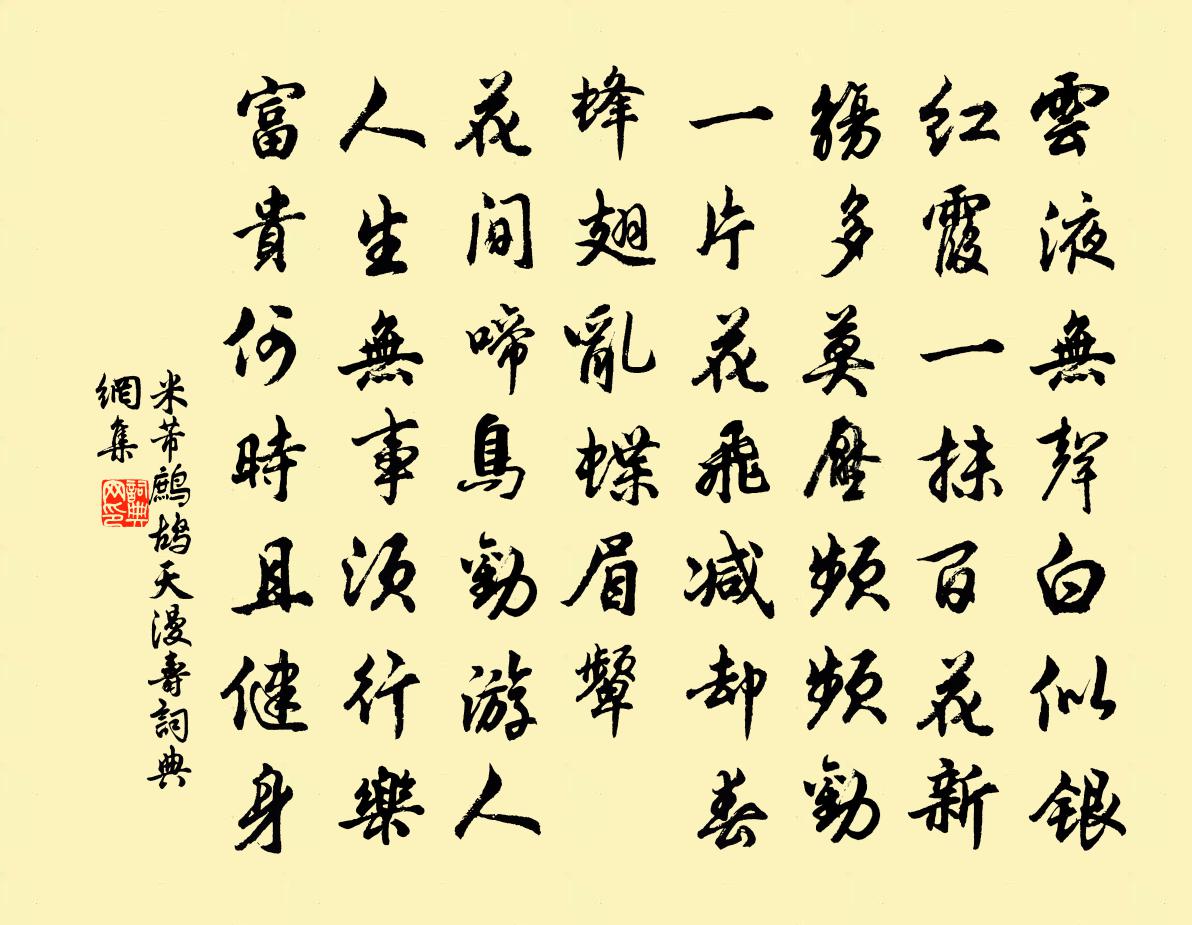 雲液無聲白似銀
紅霞一抹百花新
觴多莫厭頻頻勸
一片花飛減却春
蜂翅亂蝶眉顰
花間啼鳥勸游人
人生無事須行樂
富貴何時且健身
米芾鷓鴣天漫壽詞典
網集
詞典
网印